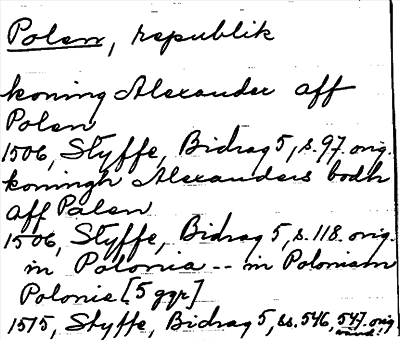 Polen, republik
koning Alexander aff
Polen
1506, Styffe, Bidrag 5, s. 97. orig.
koningh Alexanders bodh
aff Palen
1506, Styffe, Bidrag 5, s. 118. orig.
in Polonia -- in Poloniam
Polonie [5 ggr]
1515, Styffe, Bidrag 5, ss. 546, 547. orig